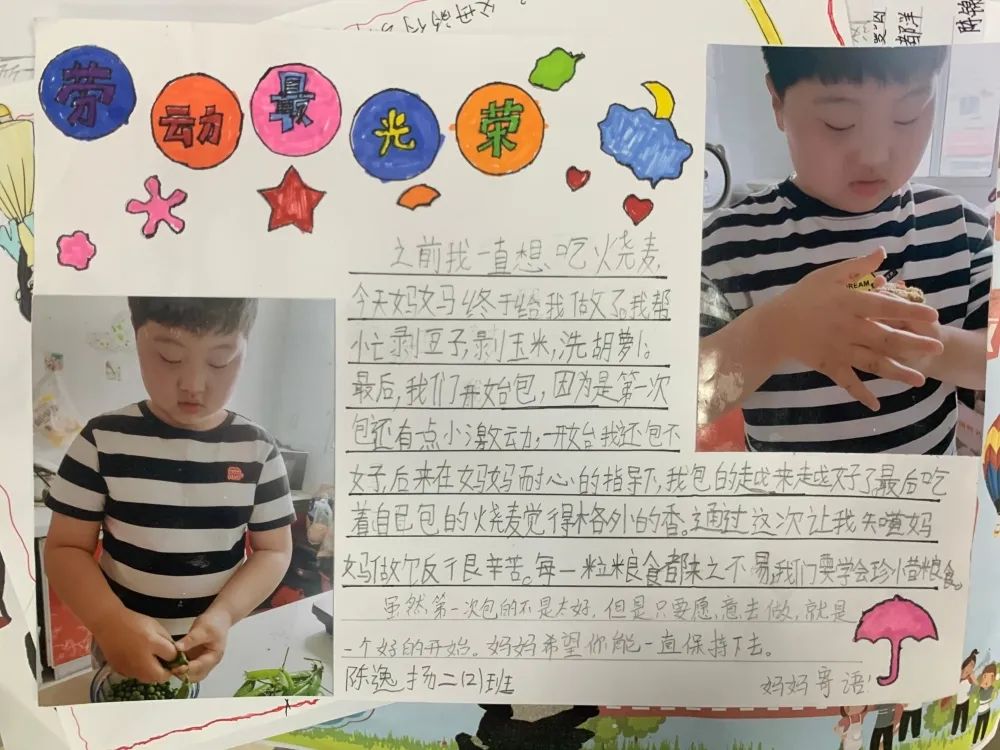 劳动最光荣
之前我一直想吃火烧麦，
今天妈妈终于给我做了。我帮
忙剥豆子，剥玉米，洗胡萝卜。
最后，我们开始包，因为是第一次
包还有点小激动，一开始我还包不
好，后来在妈妈耐心的指导下，我包的越来越好了，最后吃
着自己包的烧麦觉得格外的香。通过这次让我知道妈
妈做饭很辛苦。每一粒粮食都来之不易，我们要学会珍惜粮食。
虽然第一次包的不是太好，但是只要愿意去做，就是
一个好的开始。妈妈希望你能一直保持下去。
陈逸扬二(2)班
妈妈寄语！
DREAM